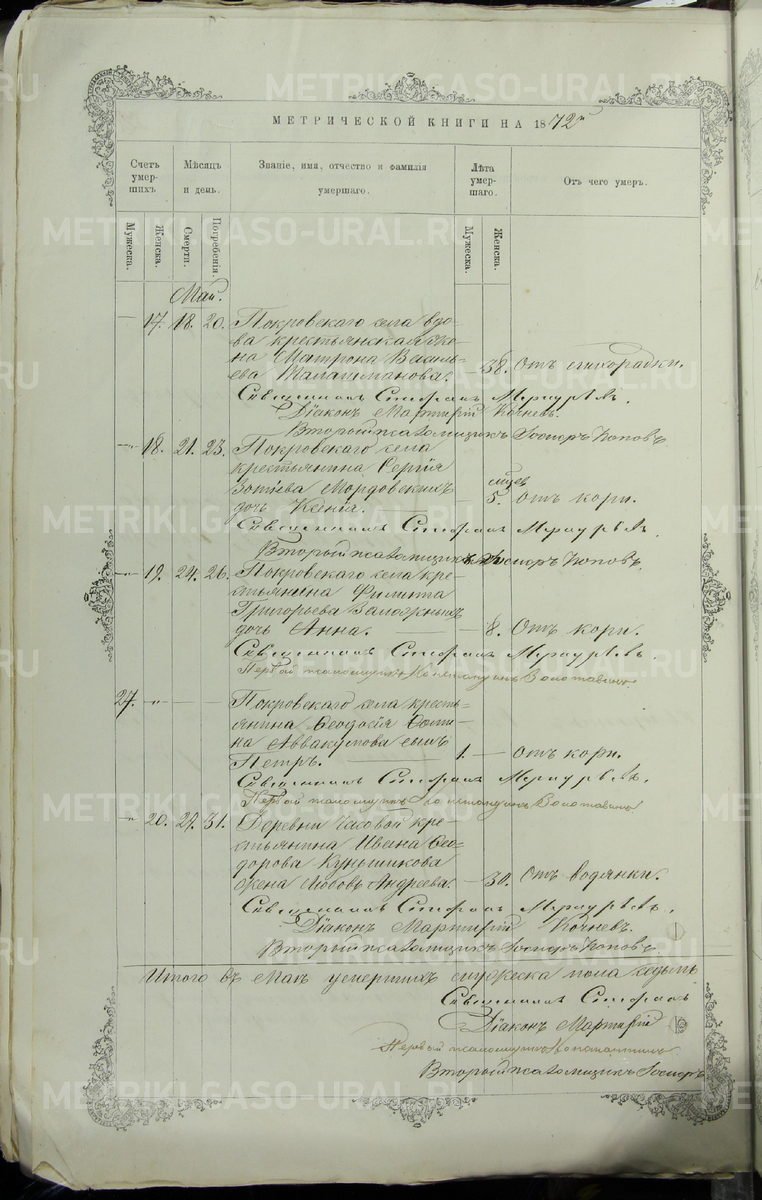 МЕТРИЧЕСКОЙ КНИГИ НА 1872й
Счетъ умер-шихъ. Мѣсяцъ и день. Званіе, имя, отчество и фамилія умершаго. Лѣта умер-шаго. Отъ чего умеръ.
Мужеска. Женска. Смерти. Погребенія. Мужеска. Женска.
Май.
— 17. 18. 20. Покровскаго села вдо-
ва крестьянская же-
на Матрона Василь-
ева Талашманова. — 38. Отъ лихорадки.
Священникъ Стефанъ Меркурьевъ.
Діаконъ Мартирій Кочневъ.
Второй псаломщикъ Поповъ
—"— 18. 21. 23. Покровскаго села
крестьянина Сергія
Зотіева Мордовскихъ мѣсяцев
дочь Ксенія. — 5. Отъ кори.
Священникъ Стефанъ Меркурьевъ.
Второй псаломщикъ Поповъ.
—"— 19. 24. 26. Покровскаго села кре-
стьянина Филиппа
Григорьева
дочь Анна. — 8. Отъ кори.
Священникъ Стефанъ Меркурьевъ.
Первой псаломщикъ Константинъ Золотавинъ
27. —"— Покровскаго села кресть-
янина Ѳеодосія Ѳоми-
на Аввакумова сынъ
Петръ. — 1. — Отъ кори.
Священникъ Стефанъ Меркурьевъ.
Первой псаломщикъ Константинъ Золотавинъ
—"— 20. 29. 31. Деревни Часовой кре-
стьянина Ивана Ѳео-
дорова Куньщикова
жена Любовь Андреева. — 30. Отъ водянки.
Священникъ Стефанъ Меркурьевъ.
Діаконъ Мартирій Кочневъ.
Второй псаломщикъ Поповъ
Итого въ Маѣ умершихъ мужеска пола седмь
Священникъ Стефанъ
Діаконъ Мартирій
Первой псаломщикъ Константинъ
Второй псаломщикъ
METRIKI.GASO-URAL.RU